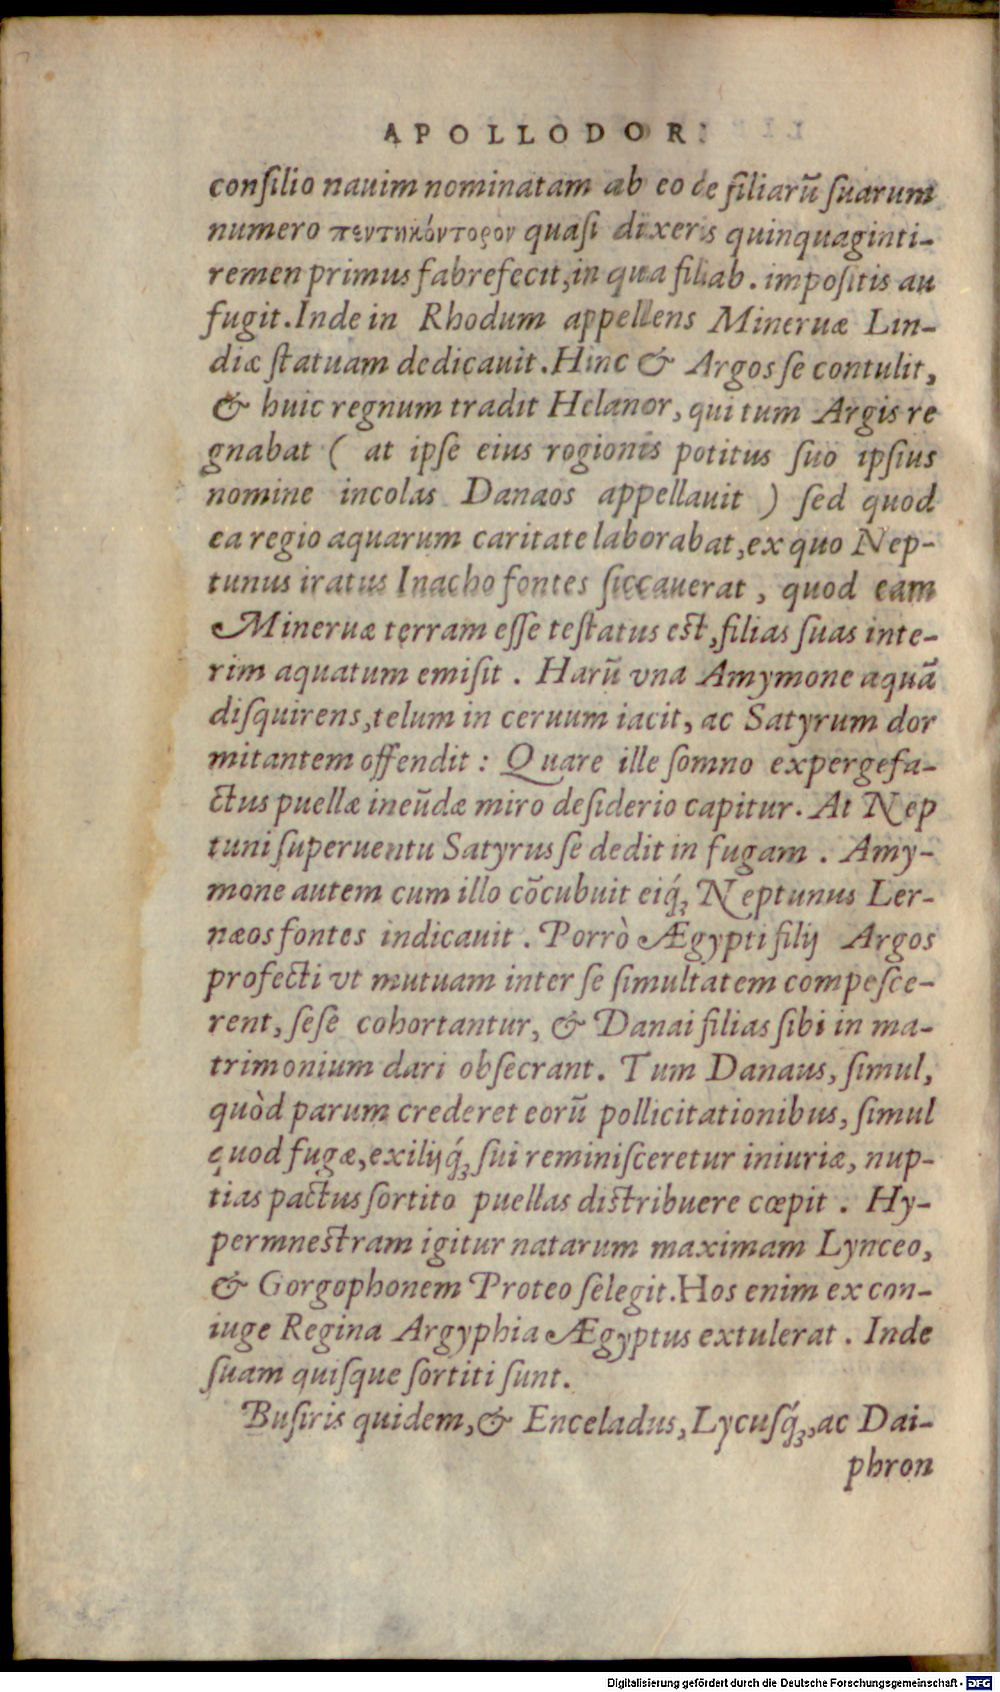 APOLLODORI
consilio nauim nominatam ab eo de filiarũ suarum
numero πεντηκόντορον quasi dixeris quinquaginti-
remen primus fabrefecit, in qua filiab. impositis au
fugit. Inde in Rhodum appellens Mineruæ Lin-
diæ statuam dedicauit. Hinc & Argos se contulit,
& huic regnum tradit Helanor, qui tum Argis re
gnabat ( at ipse eius rogionis potitus suo ipsius
nomine incolas Danaos appellauit ) sed quod
ea regio aquarum caritate laborabat, ex quo Nep-
tunus iratus Inacho fontes siccauerat, quod eam
Mineruæ terram esse testatus est, filias suas inte-
rim aquatum emisit. Harũ vna Amymone aquã
disquirens, telum in ceruum iacit, ac Satyrum dor
mitantem offendit: Quare ille somno expergefa-
ctus puellæ ineũdæ miro desiderio capitur. At Nep
tuni superuentu Satyrus se dedit in fugam. Amy-
mone autem cum illo cõcubuit eiq́; Neptunus Ler-
næos fontes indicauit. Porrò Ægypti filij Argos
profecti vt mutuam inter se simultatem compesce-
rent, sese cohortantur, & Danai filias sibi in ma-
trimonium dari obsecrant. Tum Danaus, simul,
quòd parum crederet eorũ pollicitationibus, simul
quod fugæ, exilijq́; sui reminisceretur iniuriæ, nup-
tias pactus sortito puellas distribuere cœpit. Hy-
permnestram igitur natarum maximam Lynceo,
& Gorgophonem Proteo selegit. Hos enim ex con-
iuge Regina Argyphia Ægyptus extulerat. Inde
suam quisque sortiti sunt.
Busiris quidem, & Enceladus, Lycusq́;, ac Dai-
phron
Digitalisierung gefördert durch die Deutsche Forschungsgemeinschaft - DFG